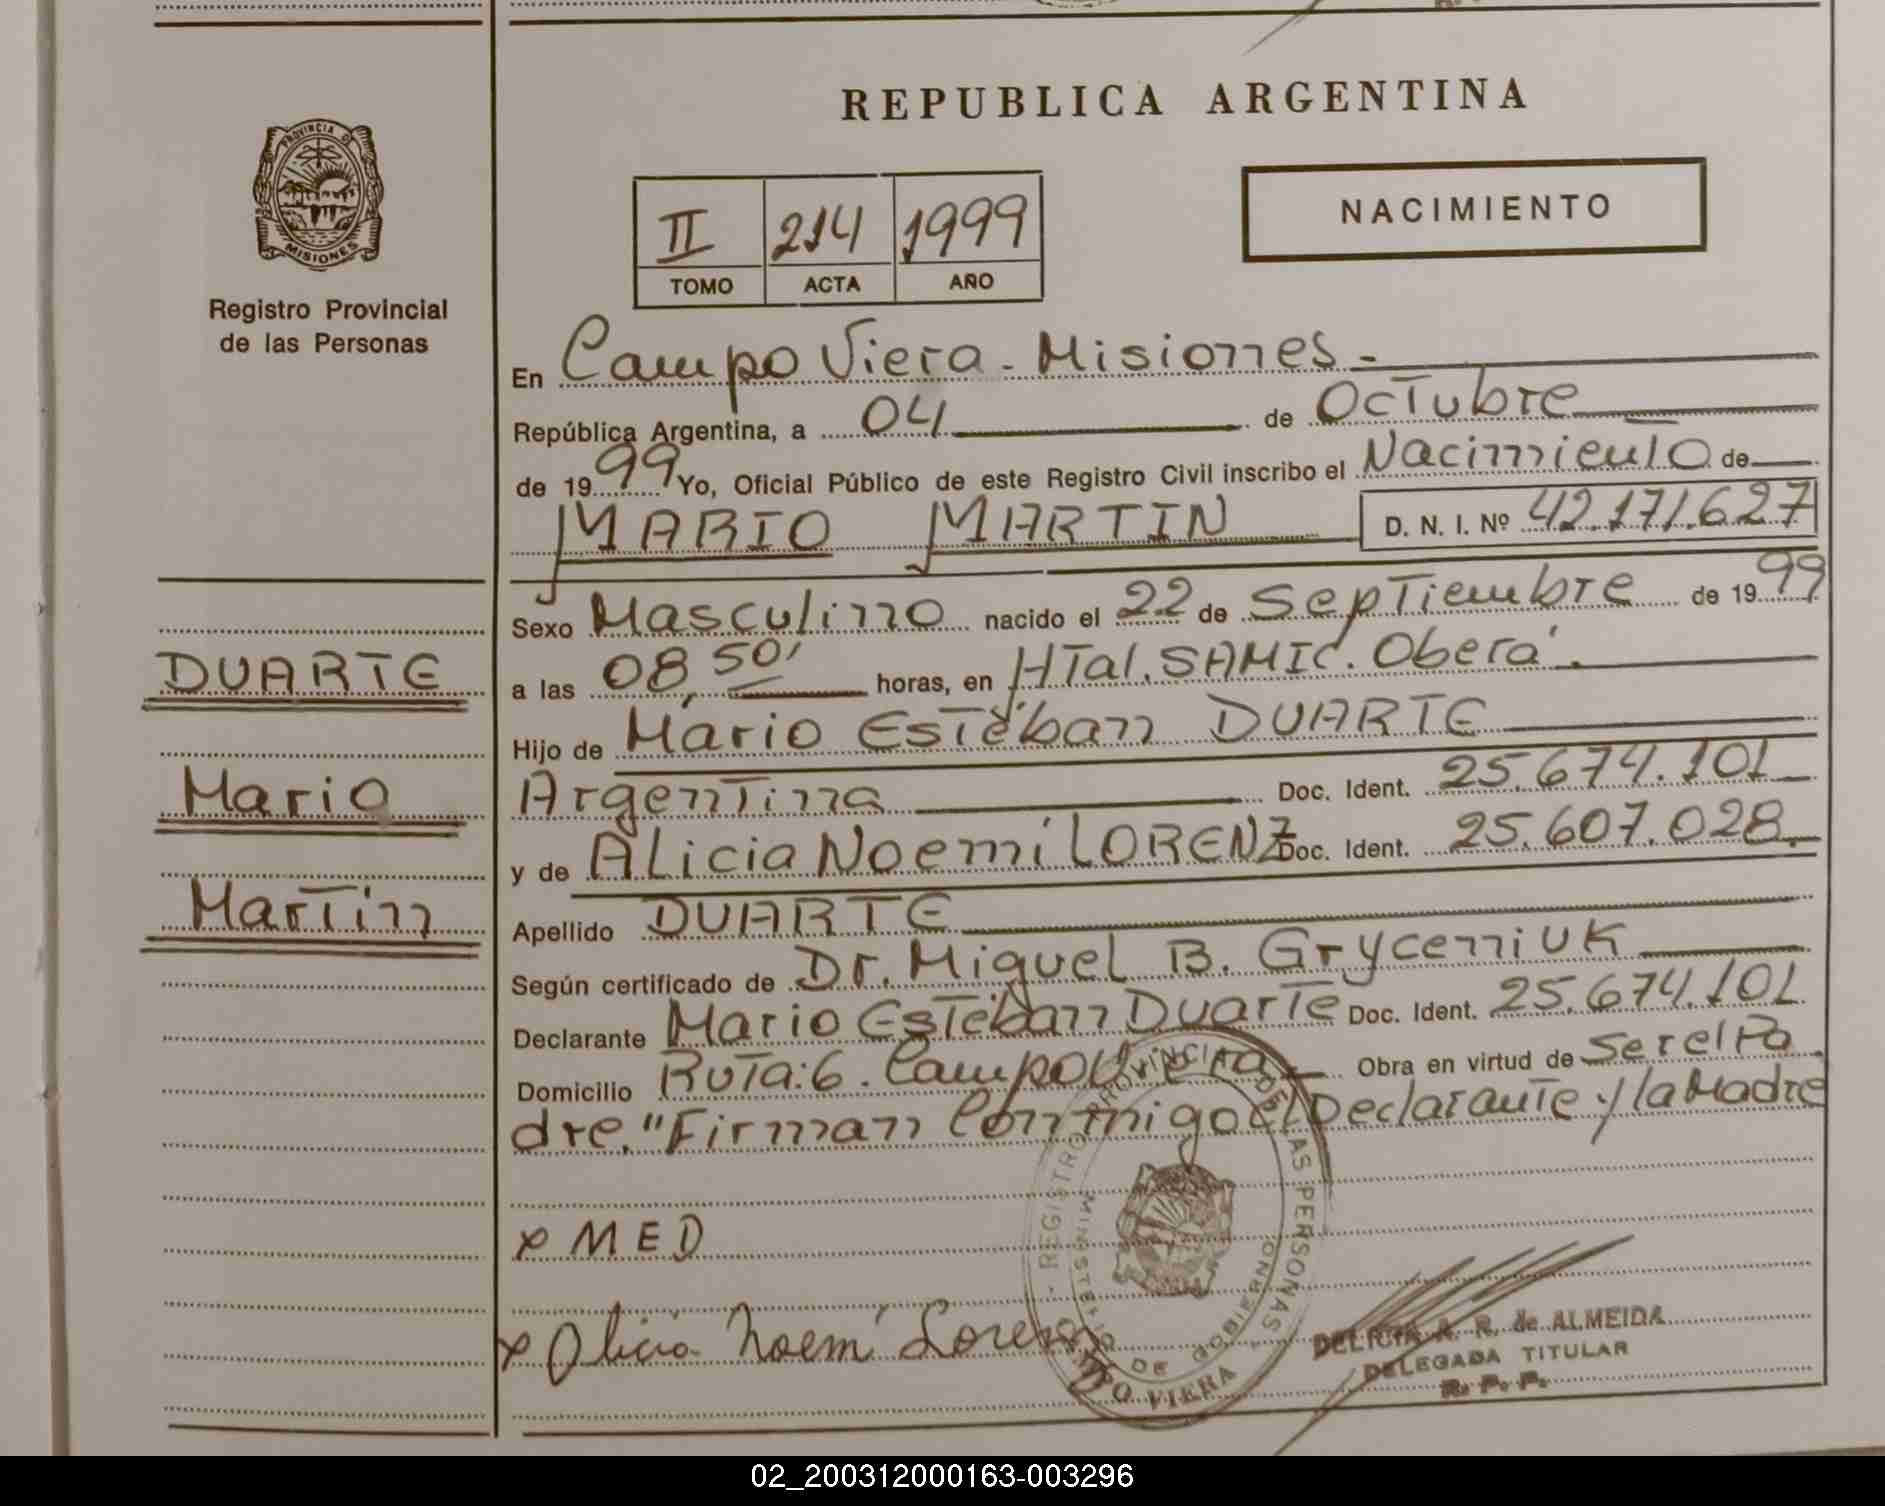 REPUBLICA ARGENTINA
PROVINCIA DE
MISIONES
Registro Provincial
de las Personas
II 214 1999
TOMO ACTA AÑO
NACIMIENTO
En Campo Viera - Misiones -
República Argentina, a 04 de Octubre
de 1999 Yo, Oficial Público de este Registro Civil inscribo el Nacimiento de
MARIO MARTIN D. N. I. Nº 42.171.627
Sexo Masculino nacido el 22 de Septiembre de 1999
a las 08,50' horas, en HTal. SAMIC. Oberá.
Hijo de Mario Estéban DUARTE
Argentina Doc. Ident. 25.674.101
y de ALicia Noemí LORENZ Doc. Ident. 25.607.028
Apellido DUARTE
Según certificado de Dr. Miguel B. Gryceniuk
Declarante Mario Estéban Duarte Doc. Ident. 25.674.101
Domicilio Ruta:6. Campo Viera Obra en virtud de ser el Pa
dre. "Firman Conmigo el Declarante y la Madre
DUARTE
Mario
Martin
x MED
x Alicia Noemí Lorenz
REGISTRO PROVINCIAL DE LAS PERSONAS
MINISTERIO DE GOBIERNO
CAMPO VIERA
A. R. de ALMEIDA
DELEGADA TITULAR
R. P. P.
02_200312000163-003296